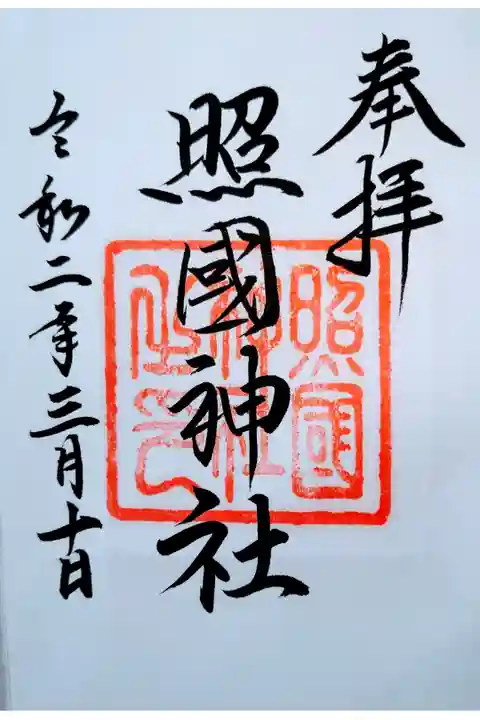 奉拝
照國神社
令和二年三月十日
照國神社之印